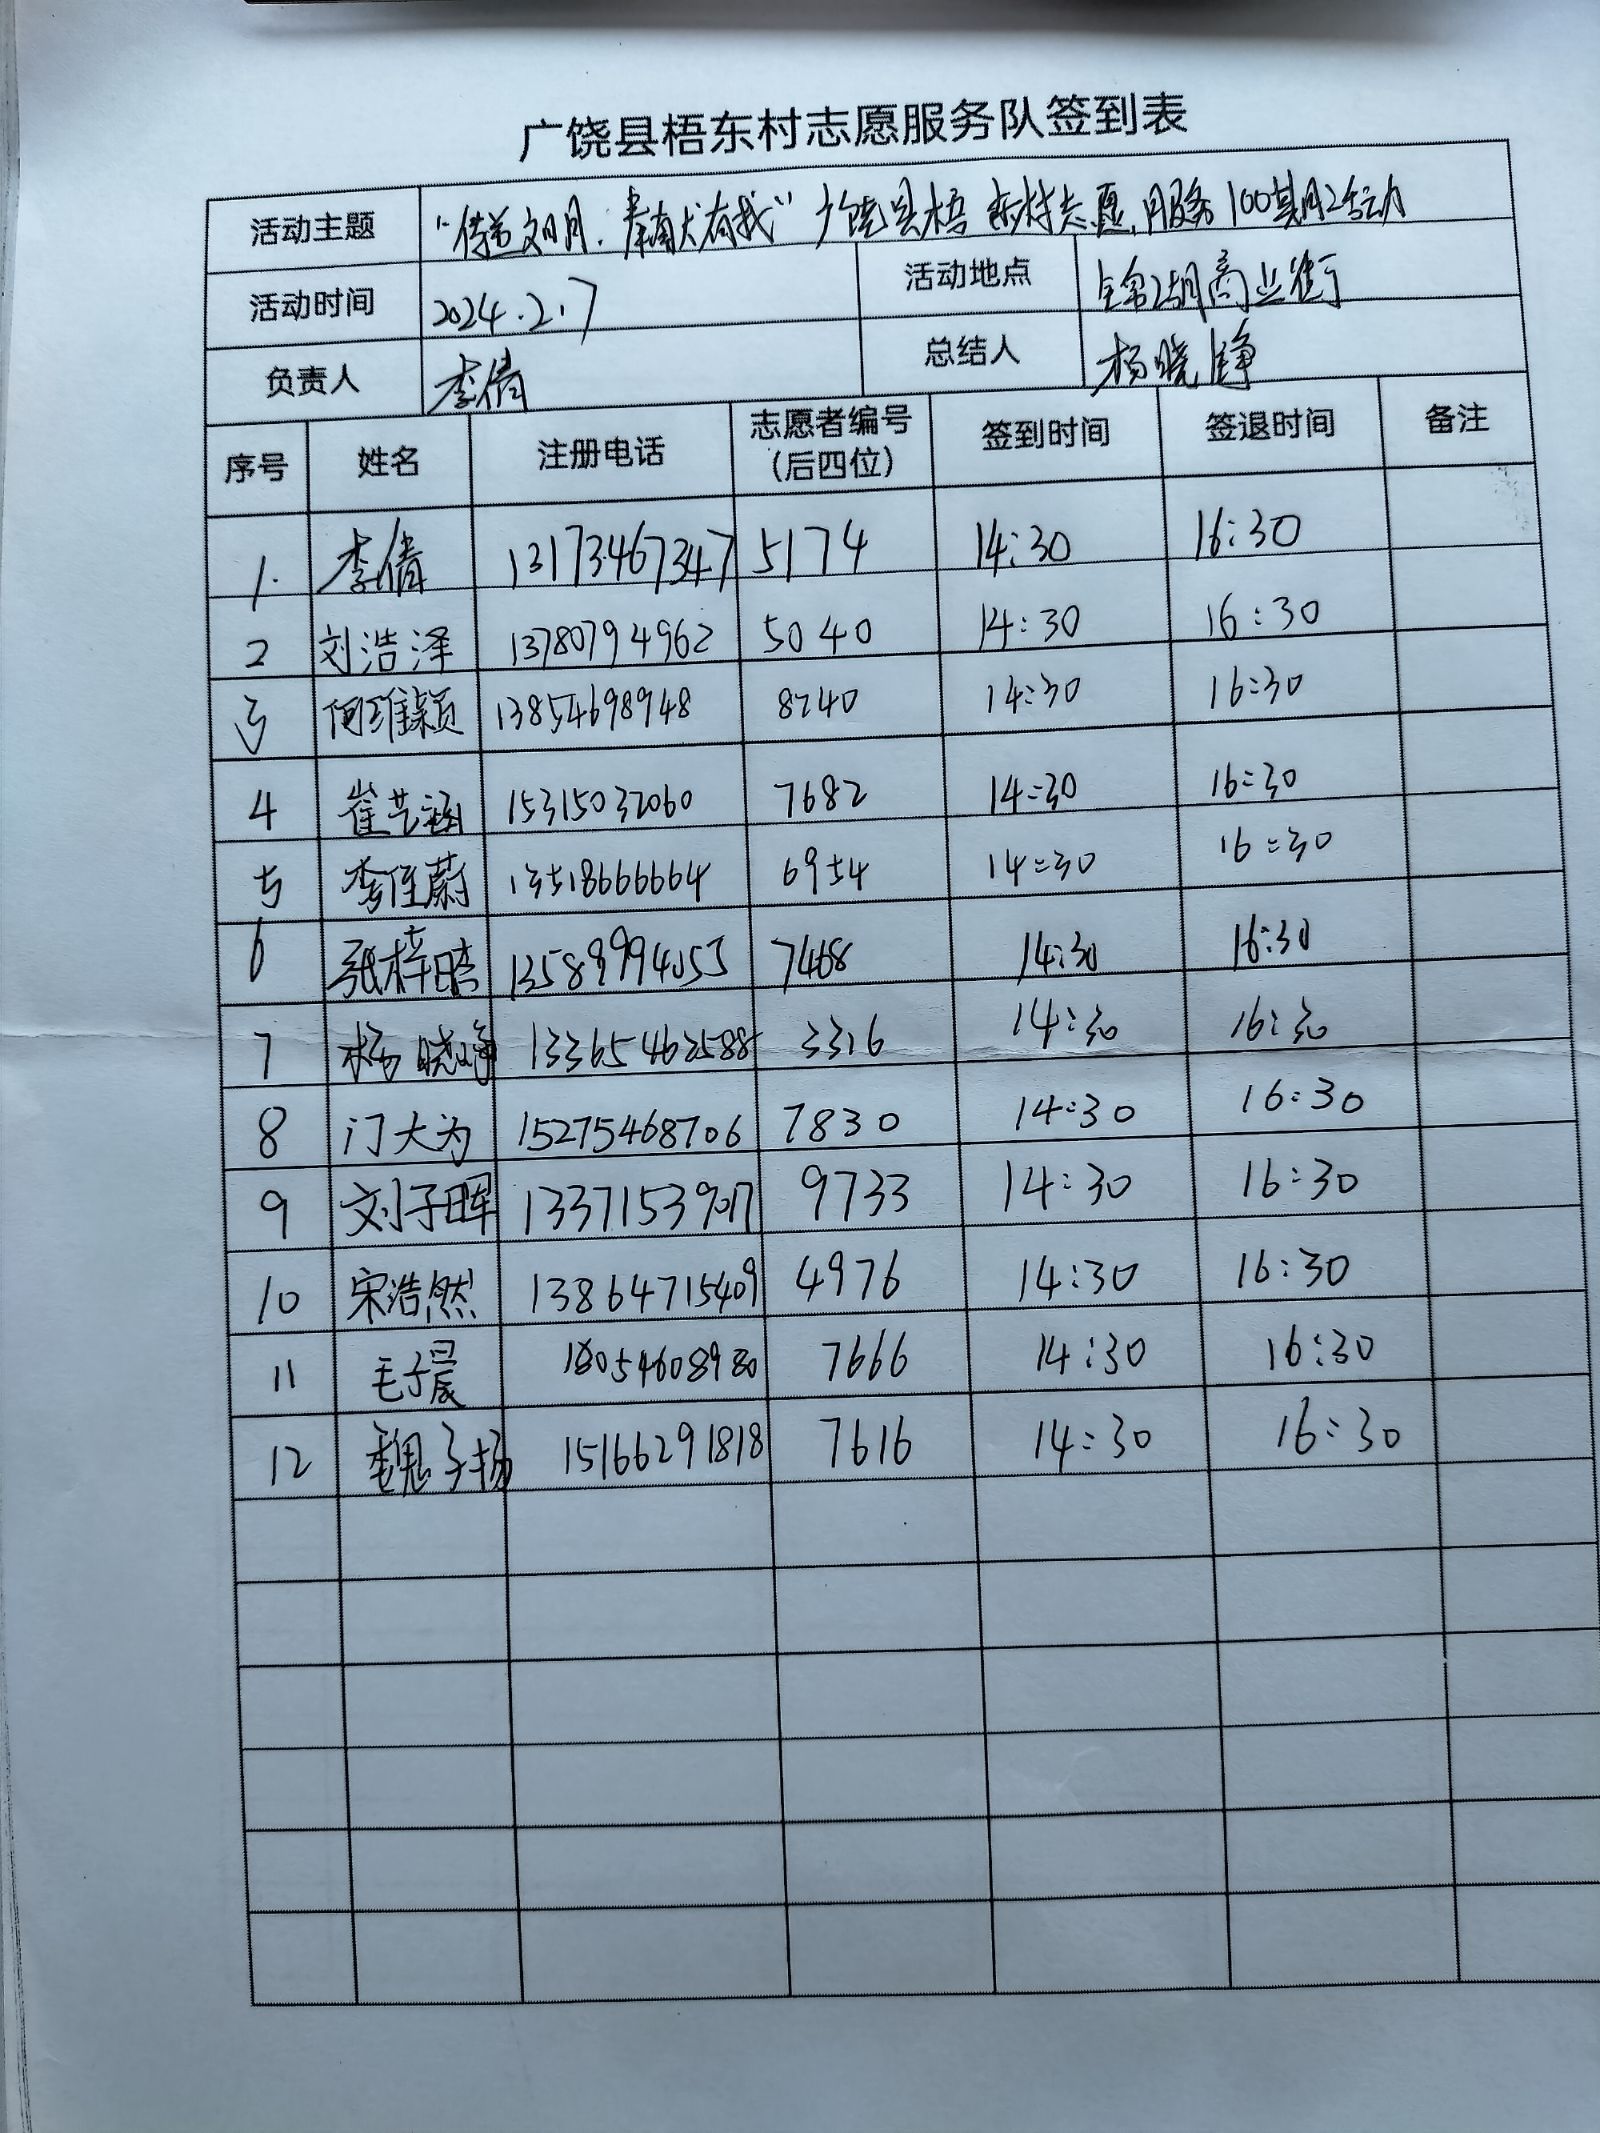 广饶县梧东村志愿服务队签到表
活动主题 “传递文明.奉献有我”广饶县梧东村志愿服务100期活动
活动时间 2024.2.7 活动地点 锦湖商业街
负责人 李倩 总结人 杨晓峥
序号 姓名 注册电话 志愿者编号（后四位） 签到时间 签退时间 备注
1. 李倩 13173467347 5174 14:30 16:30
2 刘浩泽 13780794962 5040 14:30 16:30
3 何维颖 13854698948 8240 14:30 16:30
4 崔艺涵 15315032060 7682 14:30 16:30
5 李佳蔚 13518666664 6954 14:30 16:30
6 张梓晗 13589994055 7468 14:30 16:30
7 杨晓峥 13365462588 3316 14:30 16:30
8 门大为 15275468706 7830 14:30 16:30
9 刘子晖 13371539017 9733 14:30 16:30
10 宋浩然 13864715409 4976 14:30 16:30
11 毛子晨 18054608980 7666 14:30 16:30
12 魏子扬 15166291818 7616 14:30 16:30